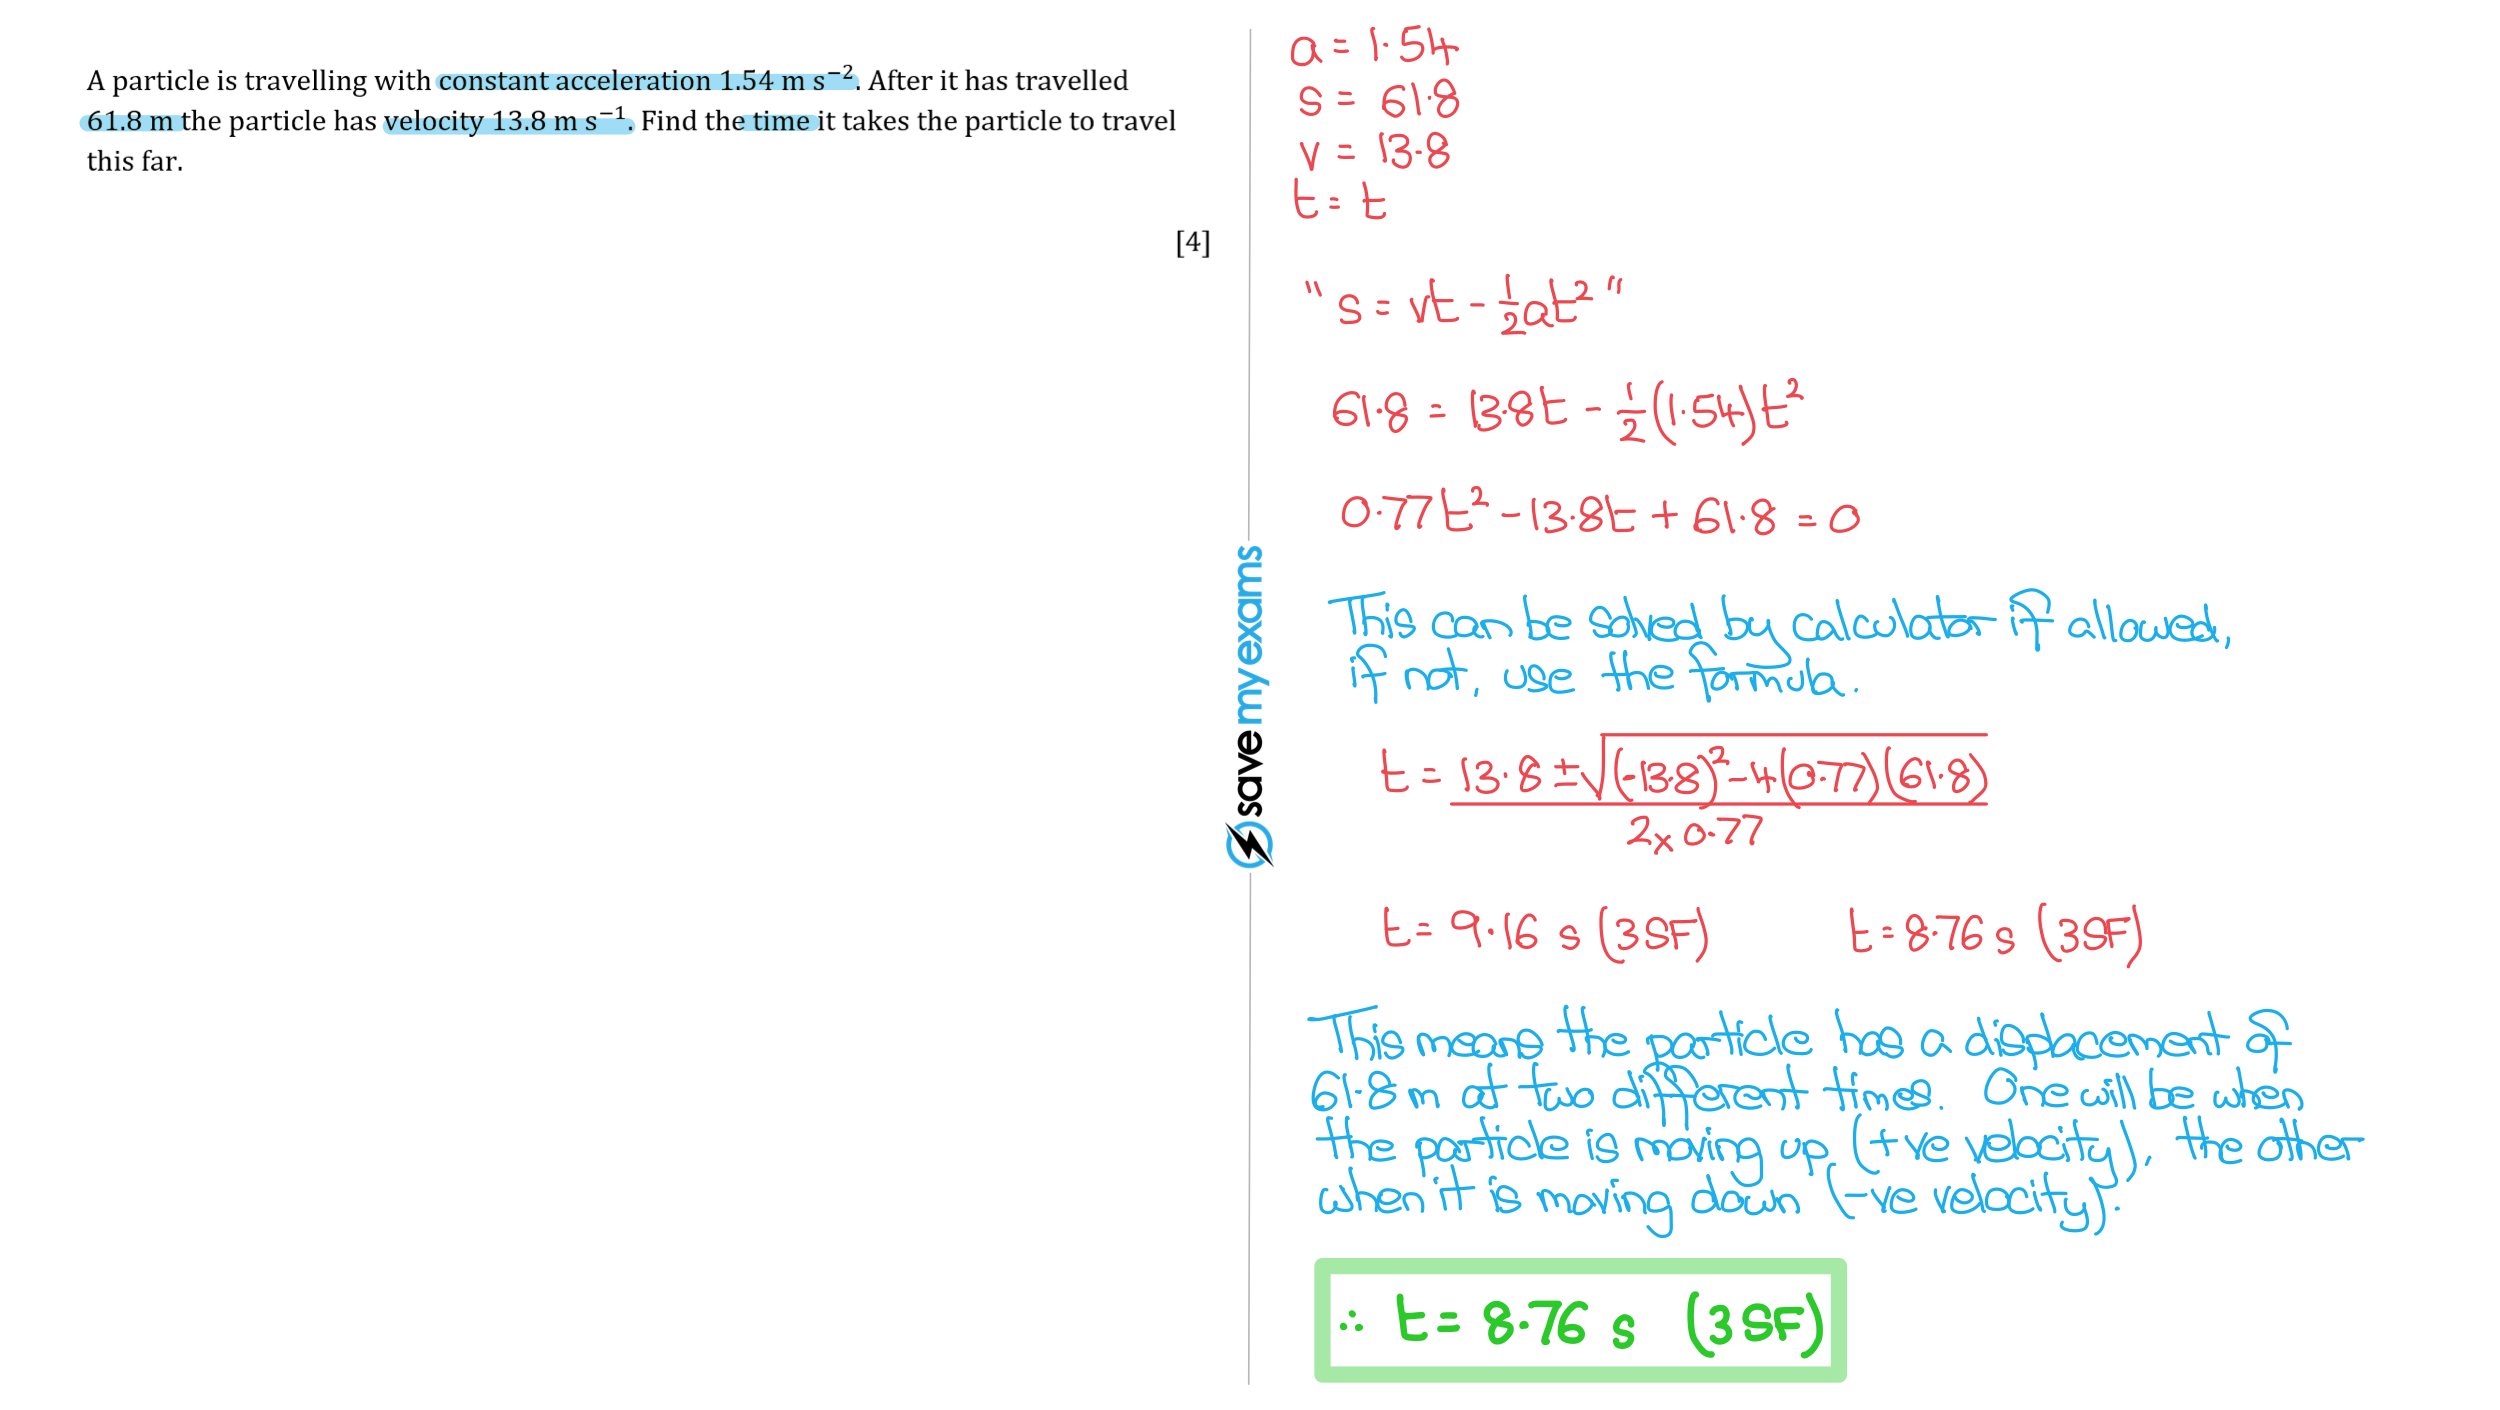 A particle is travelling with constant acceleration 1.54 m s⁻². After it has travelled
61.8 m the particle has velocity 13.8 m s⁻¹. Find the time it takes the particle to travel
this far.
[4]
save my exams
a = 1.54
s = 61.8
v = 13.8
t = t
"s = vt - ½at²"
61.8 = 13.8t - ½(1.54)t²
0.77t² - 13.8t + 61.8 = 0
This can be solved by calculator if allowed,
if not, use the formula.
t = 13.8 ± √((-13.8)² - 4(0.77)(61.8))
2 x 0.77
t = 9.16 s (3SF) t = 8.76 s (3SF)
This means the particle has a displacement of
61.8m at two different times. One will be when
the particle is moving up (+ve velocity), the other
when it is moving down (-ve velocity).
∴ t = 8.76 s (3SF)